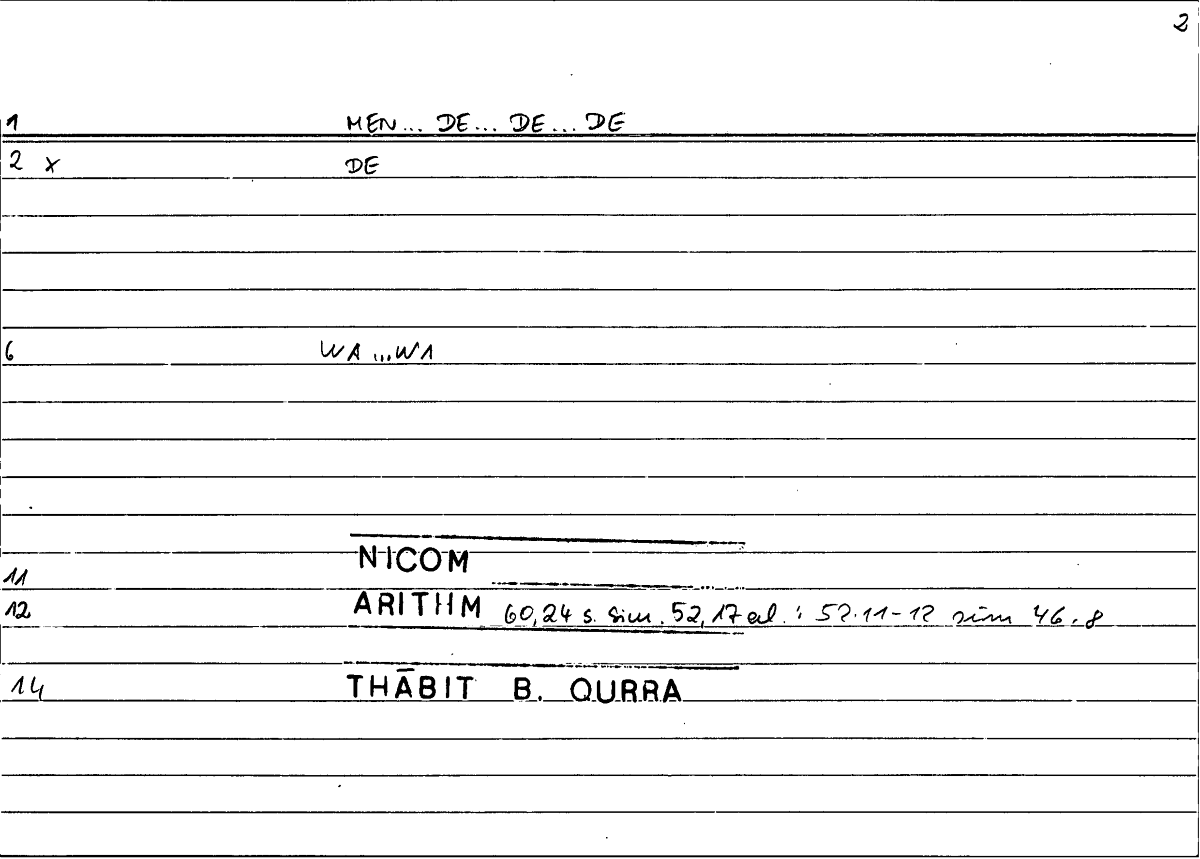 2
1 MEN... DE... DE... DE
2 x DE
6 WA ... WA
NICOM
11
12 ARITHM 60,24 s. sim. 52,17 al. : 52.11-12 sim 46.8
14 THĀBIT B. QURRA